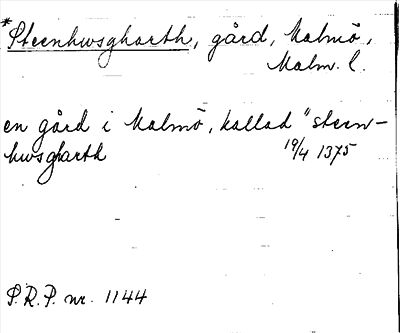 *Steenhwsgharth, gård, Malmö,
Malm. l.
en gård i Malmö, kallad "steen-
hwsgharth 19/4 1375
P.R.P. nr. 1144